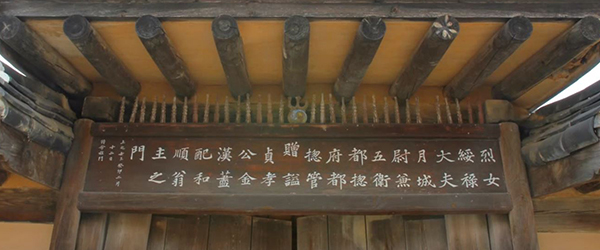 烈女
綏祿
大夫
月城
尉兼
五衛
都摠
府都
摠管
贈謚
貞孝
公金
漢藎
配和
順翁
主之
門